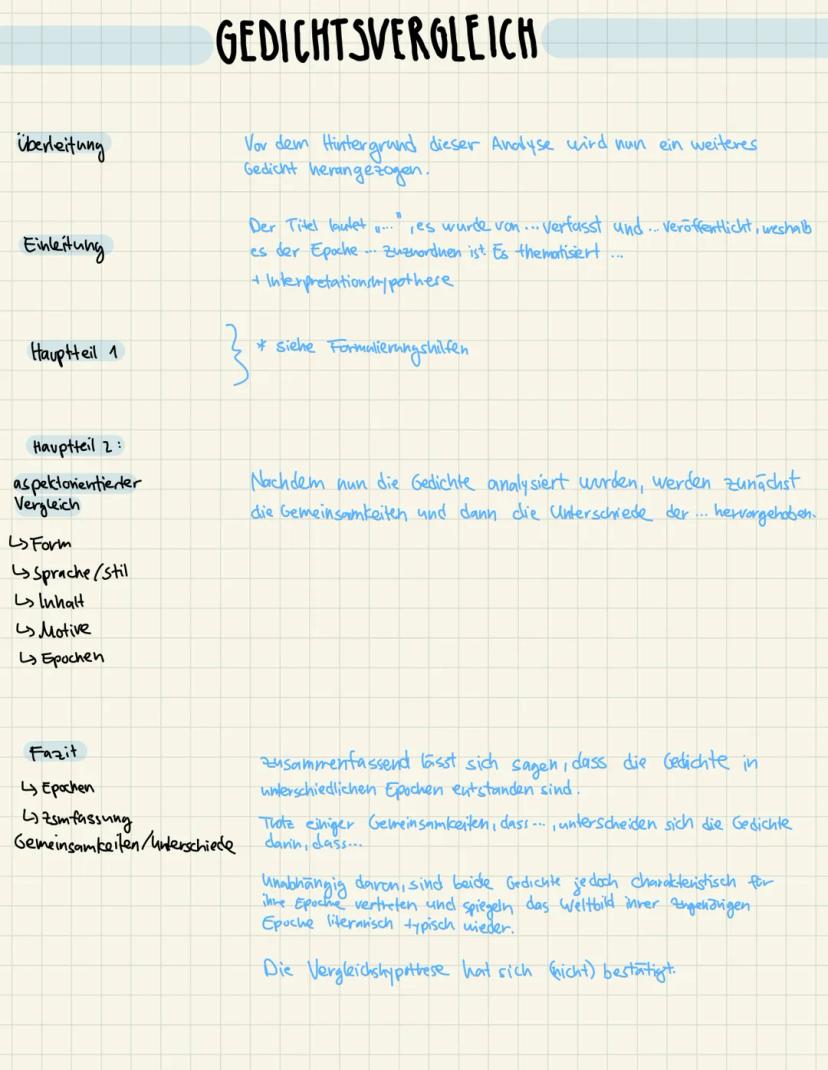 GEDICHTSVERGLEICH
Überleitung
Vor dem Hintergrund dieser Analyse wird nun ein weiteres
Gedicht herangezogen.
Einleitung
Der Titel lautet „...", es wurde von ... verfasst und ... veröffentlicht, weshalb
es der Epoche ... zuzuordnen ist. Es thematisiert ...
+ Interpretationshypothese
Hauptteil 1
* siehe Formulierungshilfen
Hauptteil 2:
aspektorientierter
Vergleich
Nachdem nun die Gedichte analysiert wurden, werden zunächst
die Gemeinsamkeiten und dann die Unterschiede der ... hervorgehoben.
↳ Form
↳ Sprache/Stil
↳ Inhalt
↳ Motive
↳ Epochen
Fazit
↳ Epochen
↳ Zsmfassung
Gemeinsamkeiten/Unterschiede
Zusammenfassend lässt sich sagen, dass die Gedichte in
unterschiedlichen Epochen entstanden sind.
Trotz einiger Gemeinsamkeiten, dass ..., unterscheiden sich die Gedichte
darin, dass...
Unabhängig davon, sind beide Gedichte jedoch charakteristisch für
ihre Epoche vertreten und spiegeln das Weltbild ihrer zugehörigen
Epoche literarisch typisch wieder.
Die Vergleichshypothese hat sich (nicht) bestätigt.